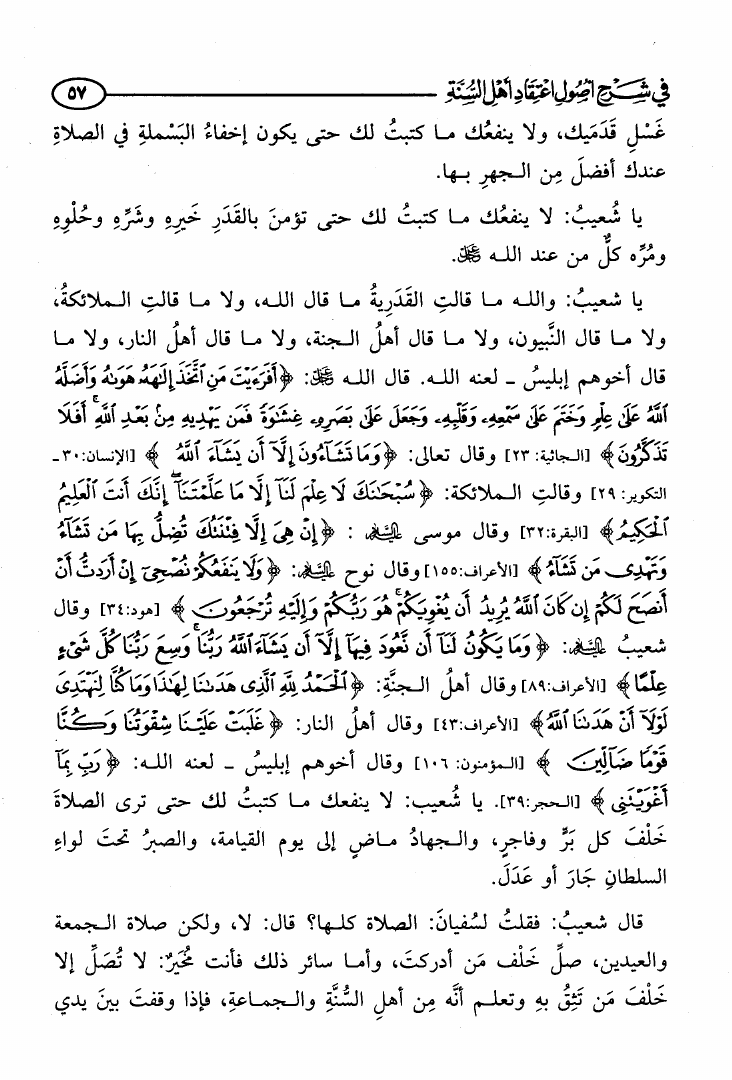 في شرح أصول اعتقاد أهل السنة ٥٧
غَسْلِ قَدَمَيك، ولا ينفعُك ما كتبتُ لك حتى يكون إخفاءُ البَسْملةِ في الصلاةِ
عندك أفضلَ مِن الجهرِ بها.
يا شُعيبُ: لا ينفعُك ما كتبتُ لك حتى تؤمنَ بالقَدَرِ خَيرِهِ وشَرِّهِ وحُلْوِهِ
ومُرِّه كلٌّ من عند الله ﷻ.
يا شعيبُ: والله ما قالتِ القَدَرِيةُ ما قال الله، ولا ما قالتِ الملائكةُ،
ولا ما قال النَّبيون، ولا ما قال أهلُ الجنة، ولا ما قال أهلُ النار، ولا ما
قال أخوهم إبليسُ ـ لعنه الله. قال الله ﷻ: ﴿أَفَرَءَيْتَ مَنِ ٱتَّخَذَ إِلَٰهَهُۥ هَوَىٰهُ وَأَضَلَّهُ
ٱللَّهُ عَلَىٰ عِلْمٍ وَخَتَمَ عَلَىٰ سَمْعِهِۦ وَقَلْبِهِۦ وَجَعَلَ عَلَىٰ بَصَرِهِۦ غِشَٰوَةً فَمَن يَهْدِيهِ مِنۢ بَعْدِ ٱللَّهِ ۚ أَفَلَا
تَذَكَّرُونَ﴾ [الجاثية: ٢٣] وقال تعالى: ﴿وَمَا تَشَآءُونَ إِلَّآ أَن يَشَآءَ ٱللَّهُ﴾ [الإنسان: ٣٠ ـ
التكوير: ٢٩] وقالتِ الملائكة: ﴿سُبْحَٰنَكَ لَا عِلْمَ لَنَآ إِلَّا مَا عَلَّمْتَنَآ ۖ إِنَّكَ أَنتَ ٱلْعَلِيمُ
ٱلْحَكِيمُ﴾ [البقرة: ٣٢] وقال موسى عليه السلام : ﴿إِنْ هِىَ إِلَّا فِتْنَتُكَ تُضِلُّ بِهَا مَن تَشَآءُ
وَتَهْدِى مَن تَشَآءُ﴾ [الأعراف: ١٥٥] وقال نوح عليه السلام: ﴿وَلَا يَنفَعُكُمْ نُصْحِىٓ إِنْ أَرَدتُّ أَنْ
أَنصَحَ لَكُمْ إِن كَانَ ٱللَّهُ يُرِيدُ أَن يُغْوِيَكُمْ ۚ هُوَ رَبُّكُمْ وَإِلَيْهِ تُرْجَعُونَ﴾ [هود: ٣٤] وقال
شعيبُ عليه السلام: ﴿وَمَا يَكُونُ لَنَآ أَن نَّعُودَ فِيهَآ إِلَّآ أَن يَشَآءَ ٱللَّهُ رَبُّنَا ۚ وَسِعَ رَبُّنَا كُلَّ شَىْءٍ
عِلْمًا﴾ [الأعراف: ٨٩] وقال أهلُ الجنَّةِ: ﴿ٱلْحَمْدُ لِلَّهِ ٱلَّذِى هَدَىٰنَا لِهَٰذَا وَمَا كُنَّا لِنَهْتَدِىَ
لَوْلَآ أَنْ هَدَىٰنَا ٱللَّهُ﴾ [الأعراف: ٤٣] وقال أهلُ النار: ﴿غَلَبَتْ عَلَيْنَا شِقْوَتُنَا وَكُنَّا
قَوْمًا ضَآلِّينَ﴾ [المؤمنون: ١٠٦] وقال أخوهم إبليسُ ـ لعنه الله: ﴿رَبِّ بِمَآ
أَغْوَيْتَنِى﴾ [الحجر: ٣٩]. يا شُعيب: لا ينفعك ما كتبتُ لك حتى ترى الصلاةَ
خَلْفَ كل بَرٍّ وفاجرٍ، والجهادُ ماضٍ إلى يوم القيامة، والصبرُ تحتَ لواءِ
السلطانِ جَارَ أو عَدَلَ.
قال شعيبُ: فقلتُ لسُفيانَ: الصلاة كلها؟ قال: لا، ولكن صلاة الجمعة
والعيدين، صلِّ خَلْف مَن أدركتَ، وأما سائر ذلك فأنت مُخَيَّرٌ: لا تُصَلِّ إلا
خَلْفَ مَن تَثِقُ بهِ وتعلم أنَّه مِن أهلِ السُّنَّةِ والجماعةِ، فإذا وقفتَ بينَ يدي